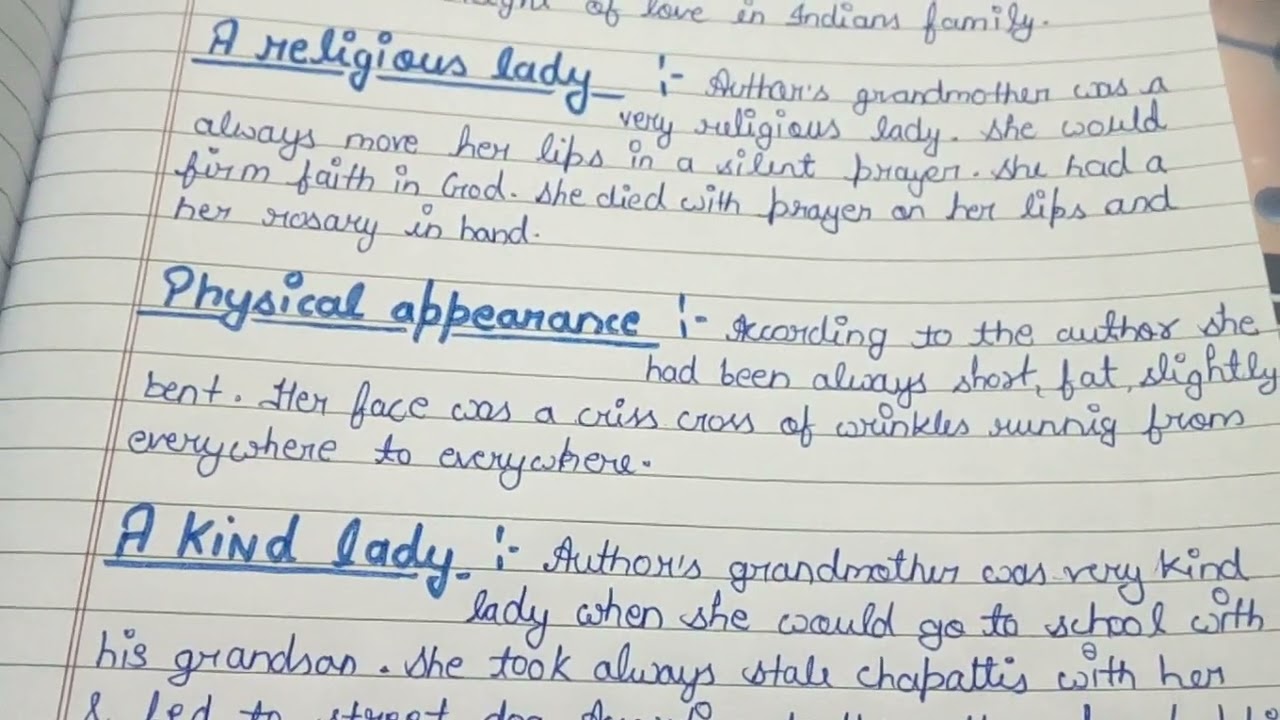 of love in Indians family.
A religious lady :- Author's grandmother was a
very religious lady. She would
always move her lips in a silent prayer. She had a
firm faith in God. She died with prayer on her lips and
her rosary in hand.
Physical appearance :- According to the author she
had been always short, fat, slightly
bent. Her face was a criss cross of wrinkles runnig from
everywhere to everywhere.
A Kind lady :- Author's grandmother was very kind
lady when she would go to school with
his grandson. She took always stale chapattis with her
& fed to street dog